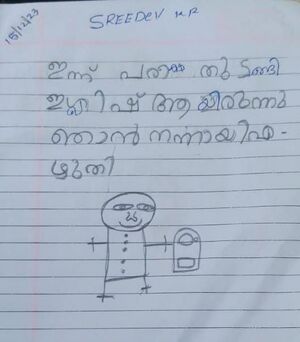 15/12/23
SREEDEV M R
ഇന്ന് പരീക്ഷ തുടങ്ങി
ഇംഗ്ലീഷ് ആയിരുന്നു
ഞാൻ നന്നായി എ-
ഴുതി